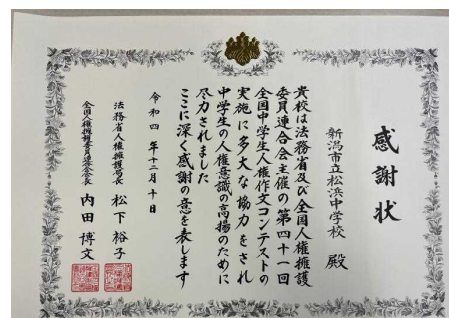 感謝状
新潟市立松浜中学校 殿
貴校は法務省及び全国人権擁護
委員連合会主催の第四十一回
全国中学生人権作文コンテストの
実施に多大な協力をされ
中学生の人権意識の高揚のために
尽力されました
ここに深く感謝の意を表します
令和四年十二月十日
法務省人権擁護局長 松下裕子
全国人権擁護委員連合会長 内田博文